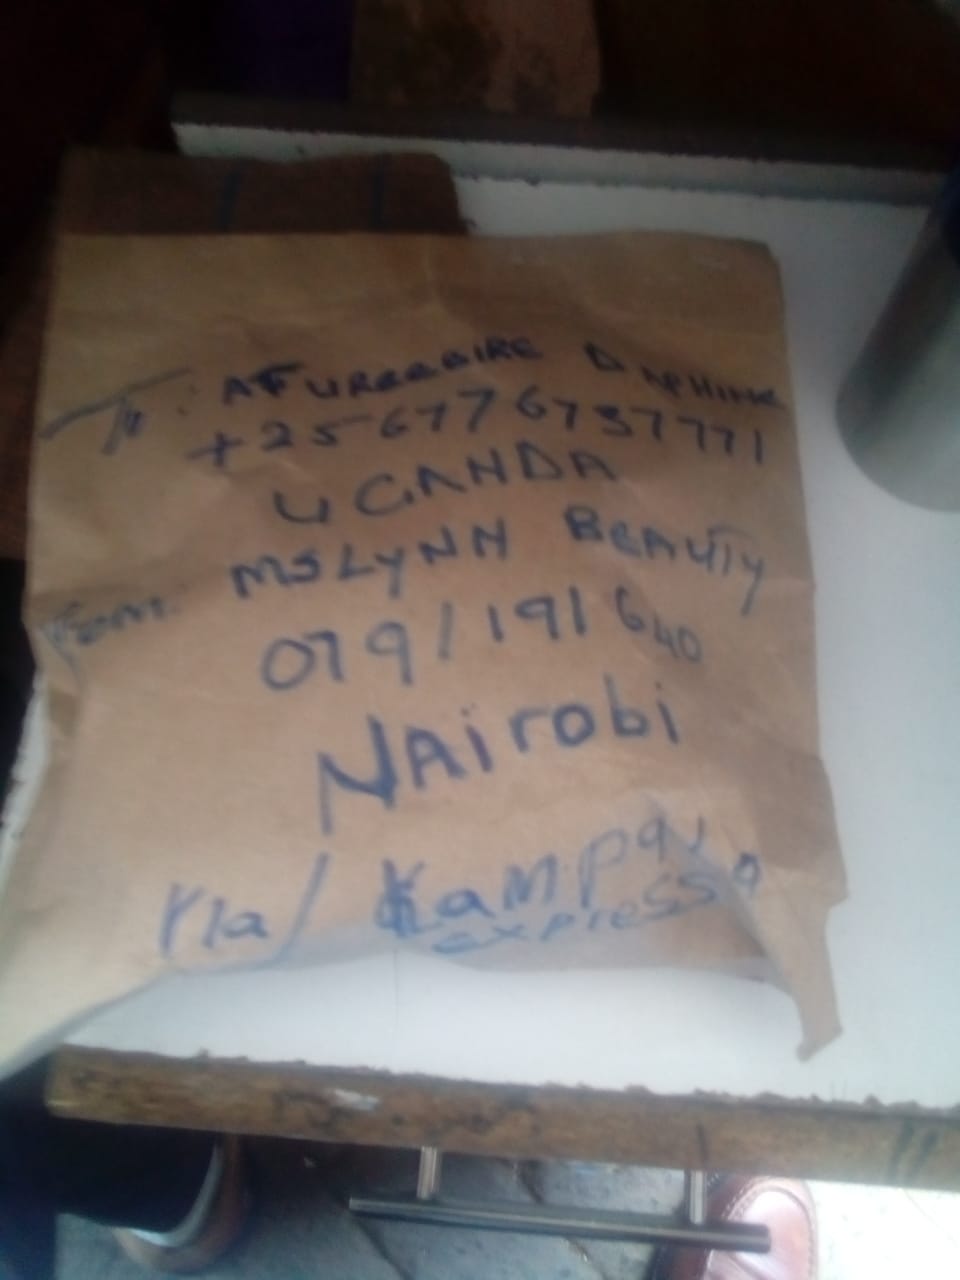 To: AFUREEBIRE DAPHINE
UGANDA
From: MSLYNN BEAUTY
079/191640
NAirobi
Kla/ Kampala
express